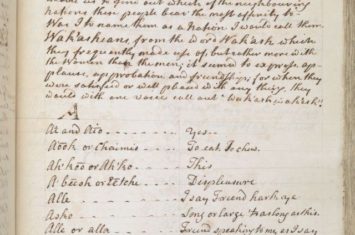 us to give out which of the neighbouring
nations these people bear the most affinity to
Was I to name them as a Nation I would call them
Wak'ashians, from the Word Wak'ash which
they frequently made use of, but rather more with
the Women than the men; it seemed to express ap-
plause, approbation and friendship; for when they
were satisfied or well pleased with any thing, they
would with one voice call out Wak'ash wak'ash.
A
Ai and Aio - - - Yes
Aook or Chaimis - - - To eat, To chew.
Ak'koo or Ak'ko - - - This
A'beek or Eetche - - - Displeasure
Alle - - - I say friend hark ye
Asko - - - Long or large
Alle or alla - - - Friend speaking to me as I say